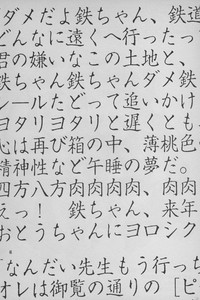 ダメだよ鉄ちゃん、鉄道
どんなに遠くへ行ったっ
君の嫌いなこの土地と、
鉄ちゃん鉄ちゃんダメ鉄
レールたどって追いかけ
ヨタリヨタリと遅くとも、
心は再び箱の中、薄桃色
精神性など午睡の夢だ。
四方八方肉肉肉肉、肉肉
えっ! 鉄ちゃん、来年
おとうちゃんにヨロシク
「なんだい先生もう行っち
オレは御覧の通りの[ピ